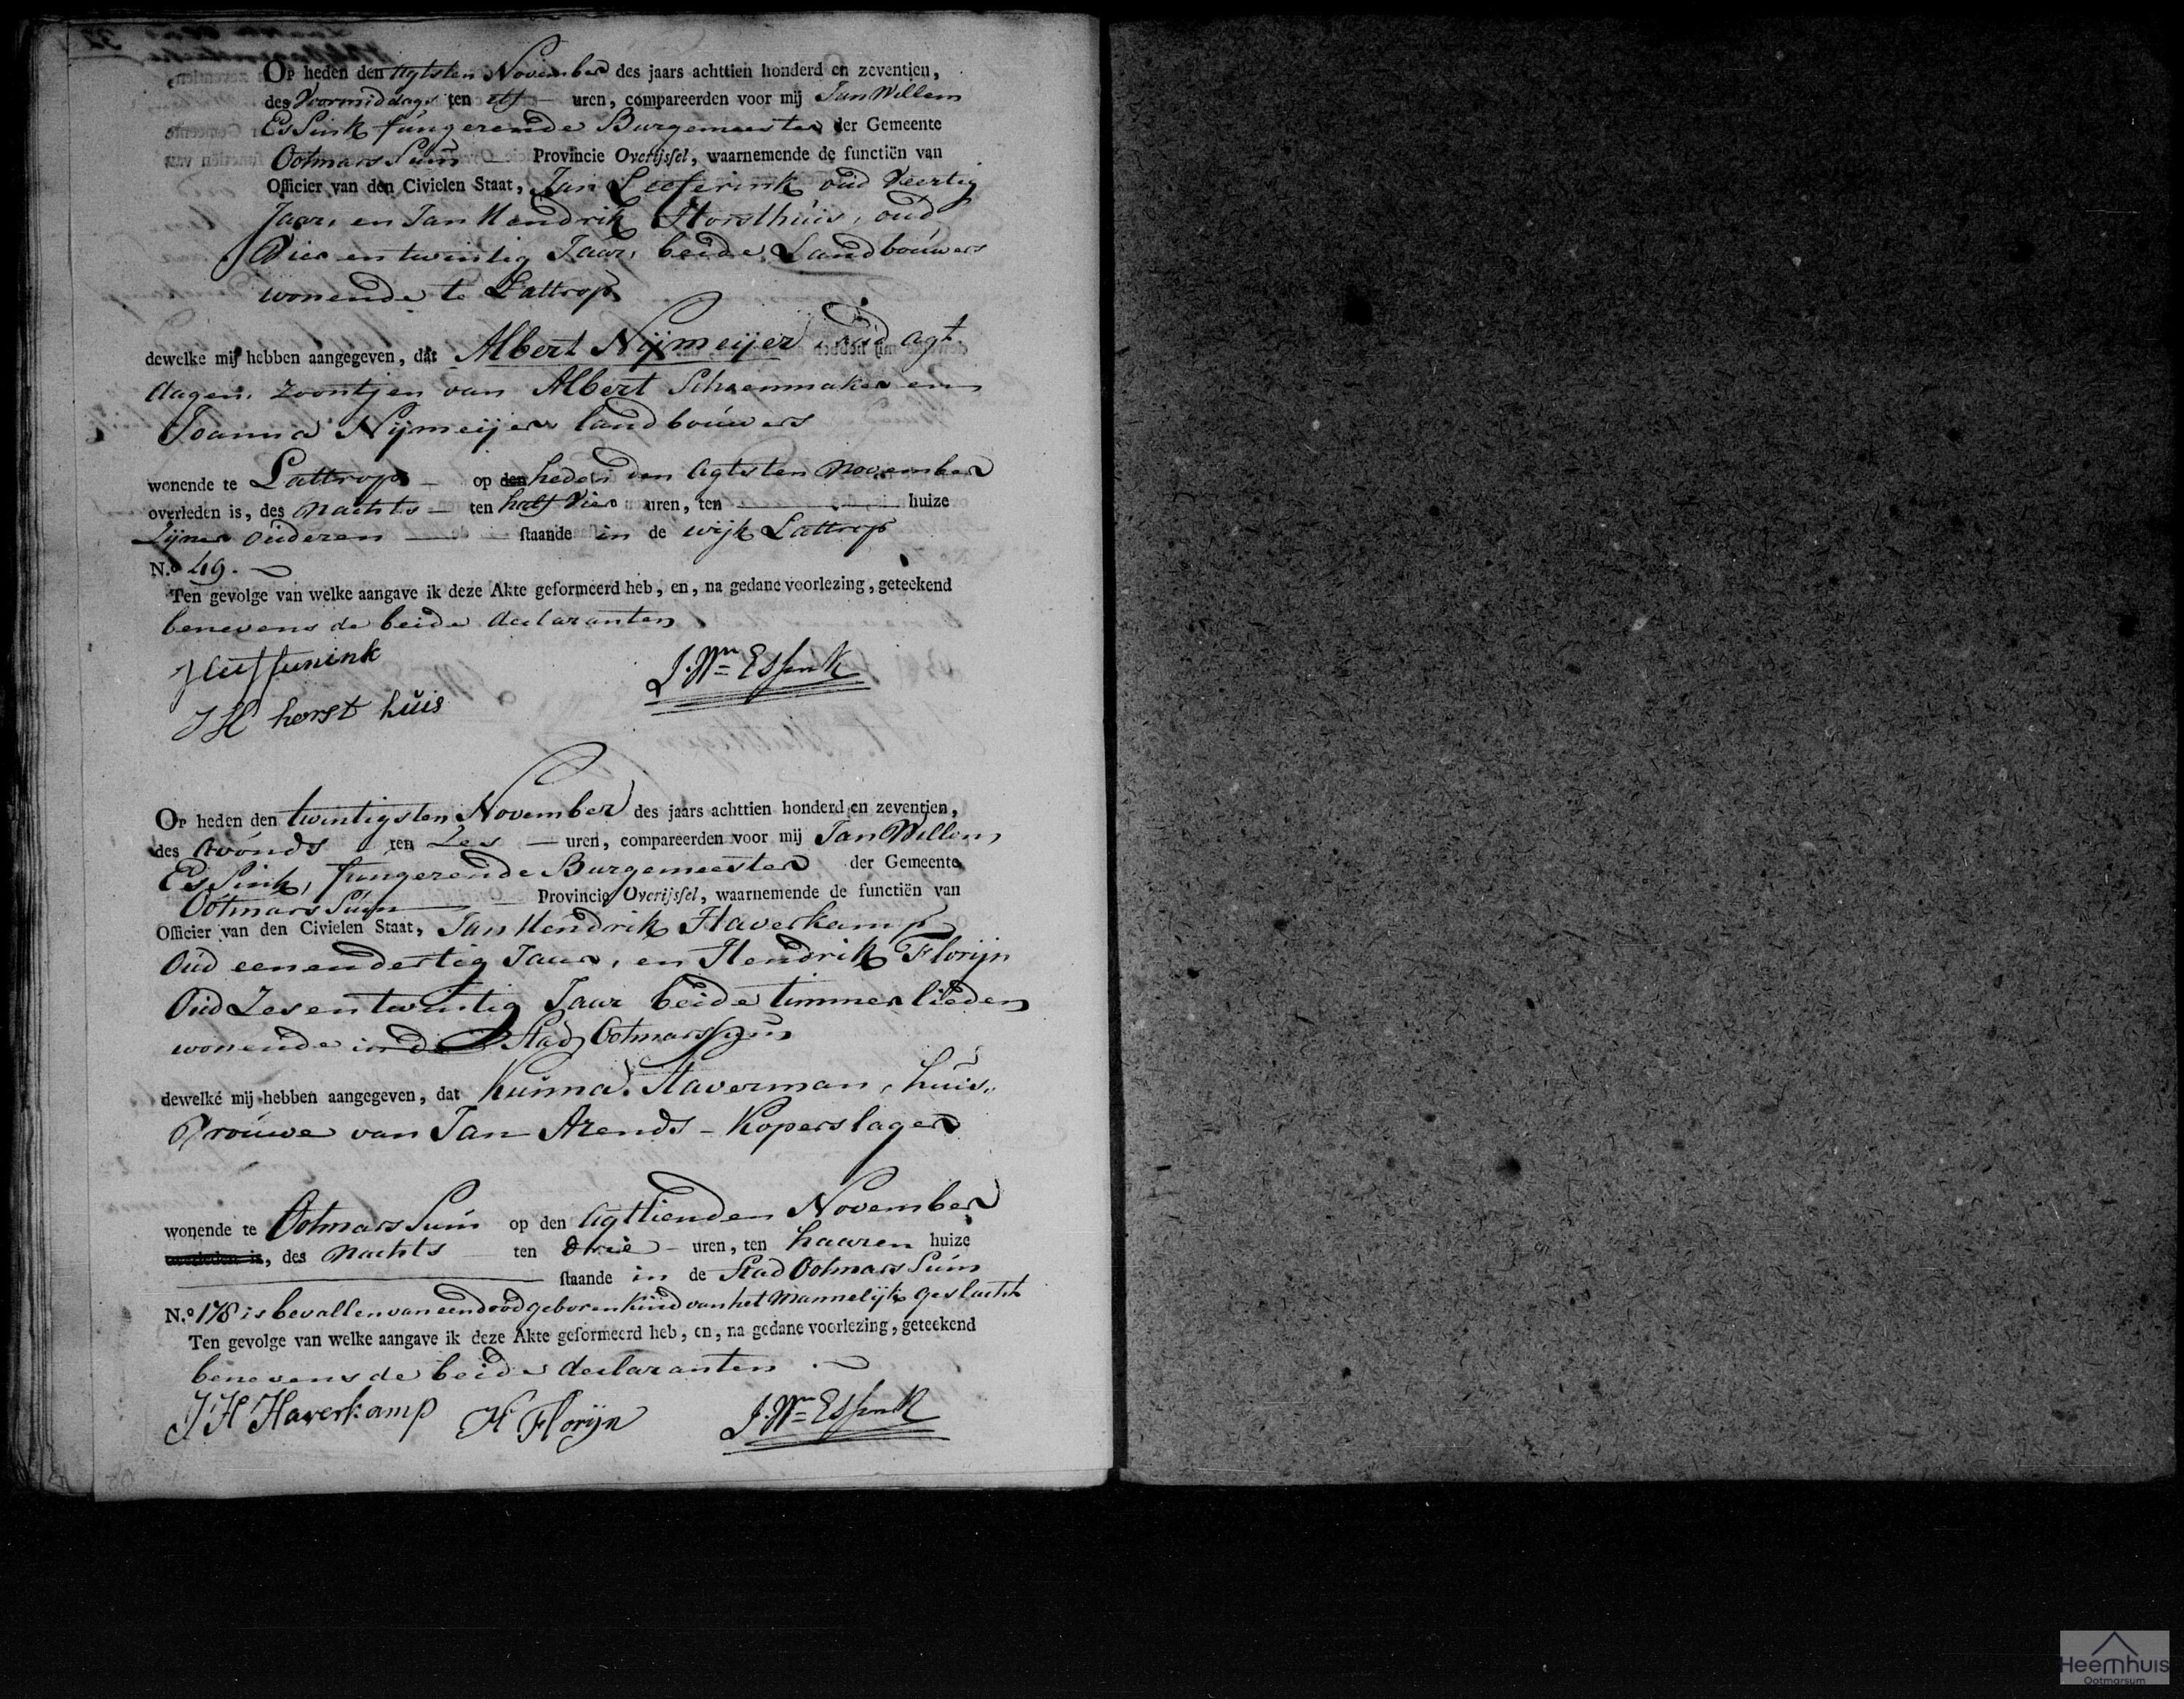 Op heden den agtsten November des jaars achttien honderd en zeventien,
des Voormiddags ten elf uren, compareerden voor mij Jan Willem
EsSink fungerende Burgemeester der Gemeente
OotmarsSum Provincie Overijssel, waarnemende de functiën van
Officier van den Civielen Staat, Jan Leeferink oud Veertig
Jaar, en Jan Hendrik Horsthuis, oud
Vier en twintig Jaar, beide Landbouwers
wonende te Lattrop
dewelke mij hebben aangegeven, dat Albert Nijmeijer, oud agt
dagen, zoontjen van Albert Schoenmaker en
Joanna Nijmeijer landbouwers
wonende te Lattrop op den heden den agtsten November
overleden is, des Nachts ten half Vier uren, ten huize
Zijner Ouderen staande in de wijk Lattrop
N.o 49.
Ten gevolge van welke aangave ik deze Akte geformeerd heb, en, na gedane voorlezing, geteekend
benevens de beide declaranten
J H horst huis
J. Wm Essink
Op heden den twintigsten November des jaars achttien honderd en zeventien,
des Avonds ten Zes uren, compareerden voor mij Jan Willem
EsSink, fungerende Burgemeester der Gemeente
OotmarsSum Provincie Overijssel, waarnemende de functiën van
Officier van den Civielen Staat, Jan Hendrik Haverkamp
Oud eenendertig Jaar, en Hendrik Florijn
Oud Zesentwintig Jaar beide timmerlieden
wonende in de Stad Ootmarssum
dewelke mij hebben aangegeven, dat Kunna Staverman, huis„
Vrouwe van Jan Arends - Koperslager
wonende te OotmarsSum op den Agttienden November
overleden is, des Nachts ten drie uren, ten haaren huize
staande in de Stad OotmarsSum
N.o 178 is bevallen van een dood geboren Kind van het Mannelijk geslacht
Ten gevolge van welke aangave ik deze Akte geformeerd heb, en, na gedane voorlezing, geteekend
benevens de beide declaranten
J H Haverkamp H Florijn J. Wm Essink
Heemhuis
Ootmarsum